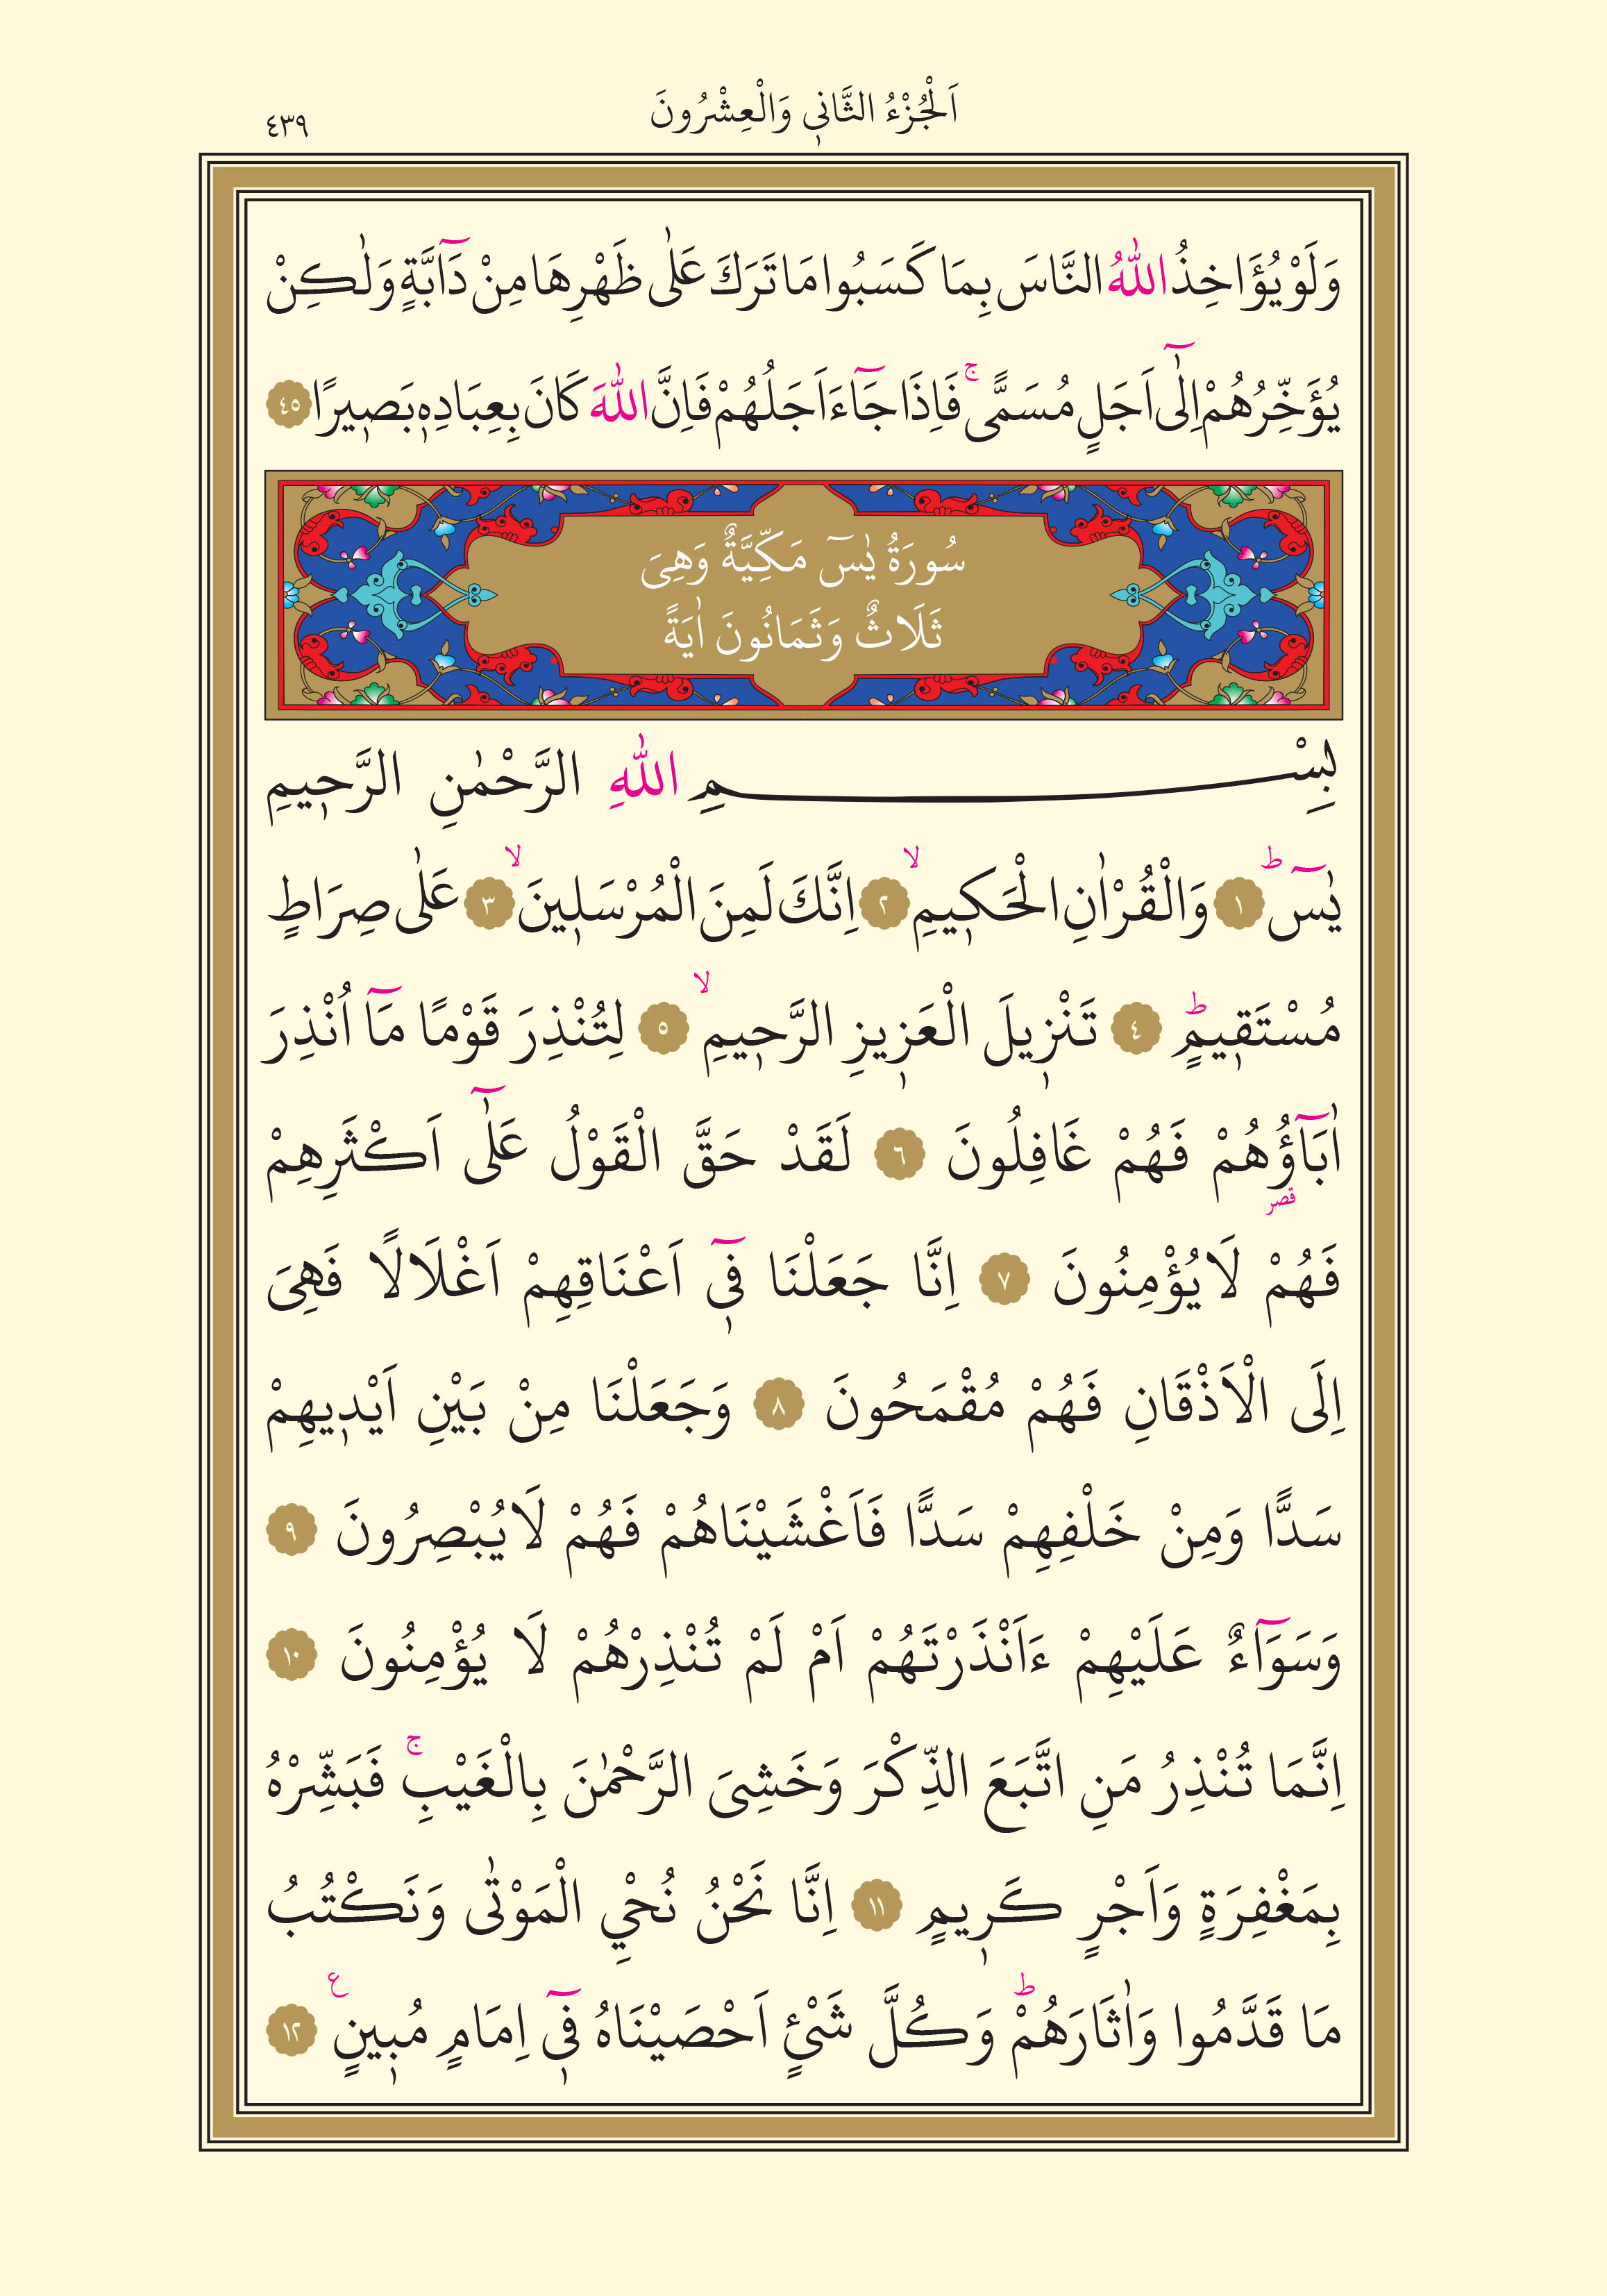 اَلْجُزْءُ الثَّانٖي وَالْعِشْرُونَ
٤٣٩
وَلَوْ يُؤَاخِذُ اللّٰهُ النَّاسَ بِمَا كَسَبُوا مَا تَرَكَ عَلٰى ظَهْرِهَا مِنْ دَٓابَّةٍ وَلٰكِنْ
يُؤَخِّرُهُمْ اِلٰٓى اَجَلٍ مُسَمًّىۚ فَاِذَا جَٓاءَ اَجَلُهُمْ فَاِنَّ اللّٰهَ كَانَ بِعِبَادِهٖ بَصٖيرًا ٤٥
سُورَةُ يٰسٓ مَكِّيَّةٌ وَهِىَ
ثَلَاثٌ وَثَمَانُونَ اٰيَةً
بِسْمِ اللّٰهِ الرَّحْمٰنِ الرَّحٖيمِ
يٰسٓۜ ١ وَالْقُرْاٰنِ الْحَكٖيمِۙ ٢ اِنَّكَ لَمِنَ الْمُرْسَلٖينَۙ ٣ عَلٰى صِرَاطٍ
مُسْتَقٖيمٍۜ ٤ تَنْزٖيلَ الْعَزٖيزِ الرَّحٖيمِۙ ٥ لِتُنْذِرَ قَوْمًا مَٓا اُنْذِرَ
اٰبَٓاؤُهُمْ فَهُمْ غَافِلُونَ ٦ لَقَدْ حَقَّ الْقَوْلُ عَلٰٓى اَكْثَرِهِمْ
قصر
فَهُمْ لَا يُؤْمِنُونَ ٧ اِنَّا جَعَلْنَا فٖٓى اَعْنَاقِهِمْ اَغْلَالًا فَهِىَ
اِلَى الْاَذْقَانِ فَهُمْ مُقْمَحُونَ ٨ وَجَعَلْنَا مِنْ بَيْنِ اَيْدٖيهِمْ
سَدًّا وَمِنْ خَلْفِهِمْ سَدًّا فَاَغْشَيْنَاهُمْ فَهُمْ لَا يُبْصِرُونَ ٩
وَسَوَٓاءٌ عَلَيْهِمْ ءَاَنْذَرْتَهُمْ اَمْ لَمْ تُنْذِرْهُمْ لَا يُؤْمِنُونَ ١٠
اِنَّمَا تُنْذِرُ مَنِ اتَّبَعَ الذِّكْرَ وَخَشِىَ الرَّحْمٰنَ بِالْغَيْبِۚ فَبَشِّرْهُ
بِمَغْفِرَةٍ وَاَجْرٍ كَرٖيمٍ ١١ اِنَّا نَحْنُ نُحْيِ الْمَوْتٰى وَنَكْتُبُ
مَا قَدَّمُوا وَاٰثَارَهُمْۜ وَكُلَّ شَىْءٍ اَحْصَيْنَاهُ فٖٓى اِمَامٍ مُبٖينٍ ع ١٢